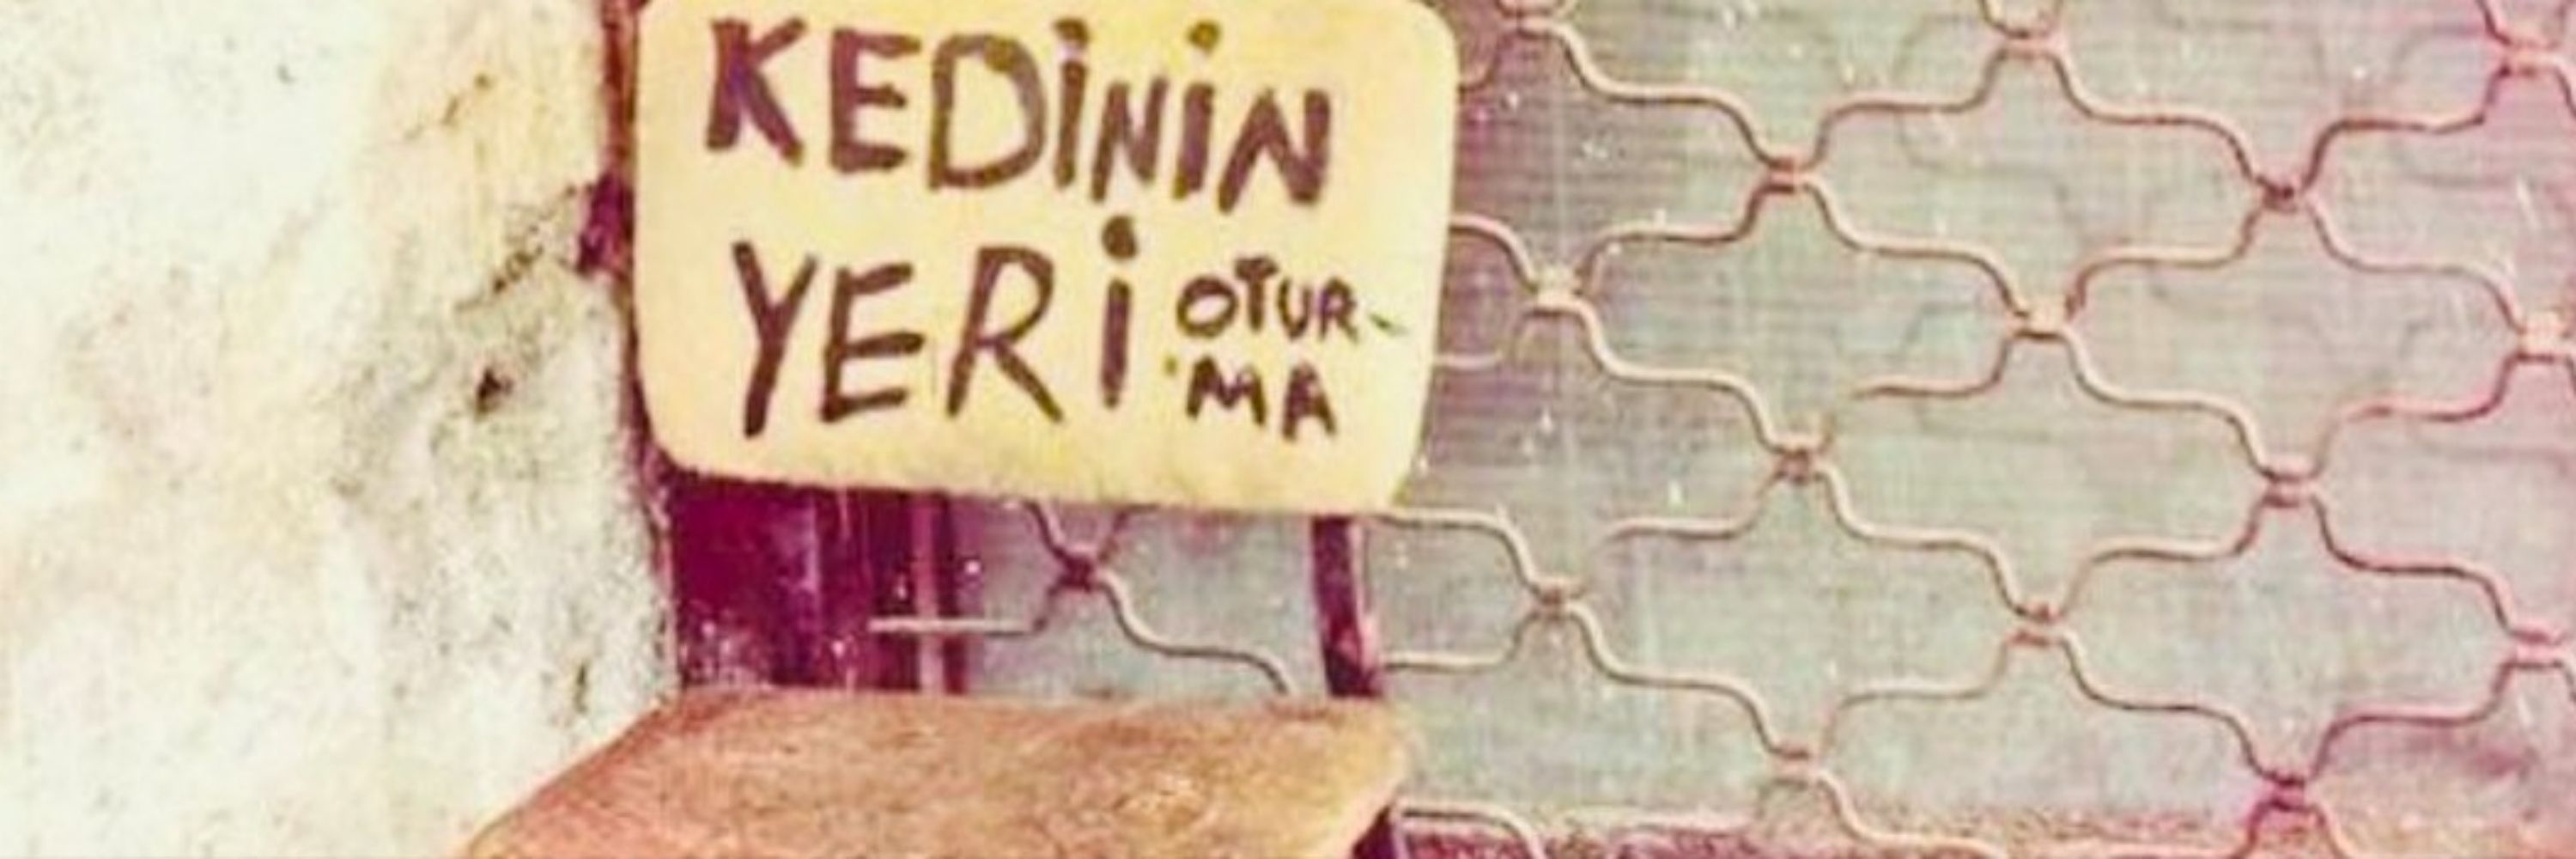 KEDİNİN
YERİ OTUR-
MA